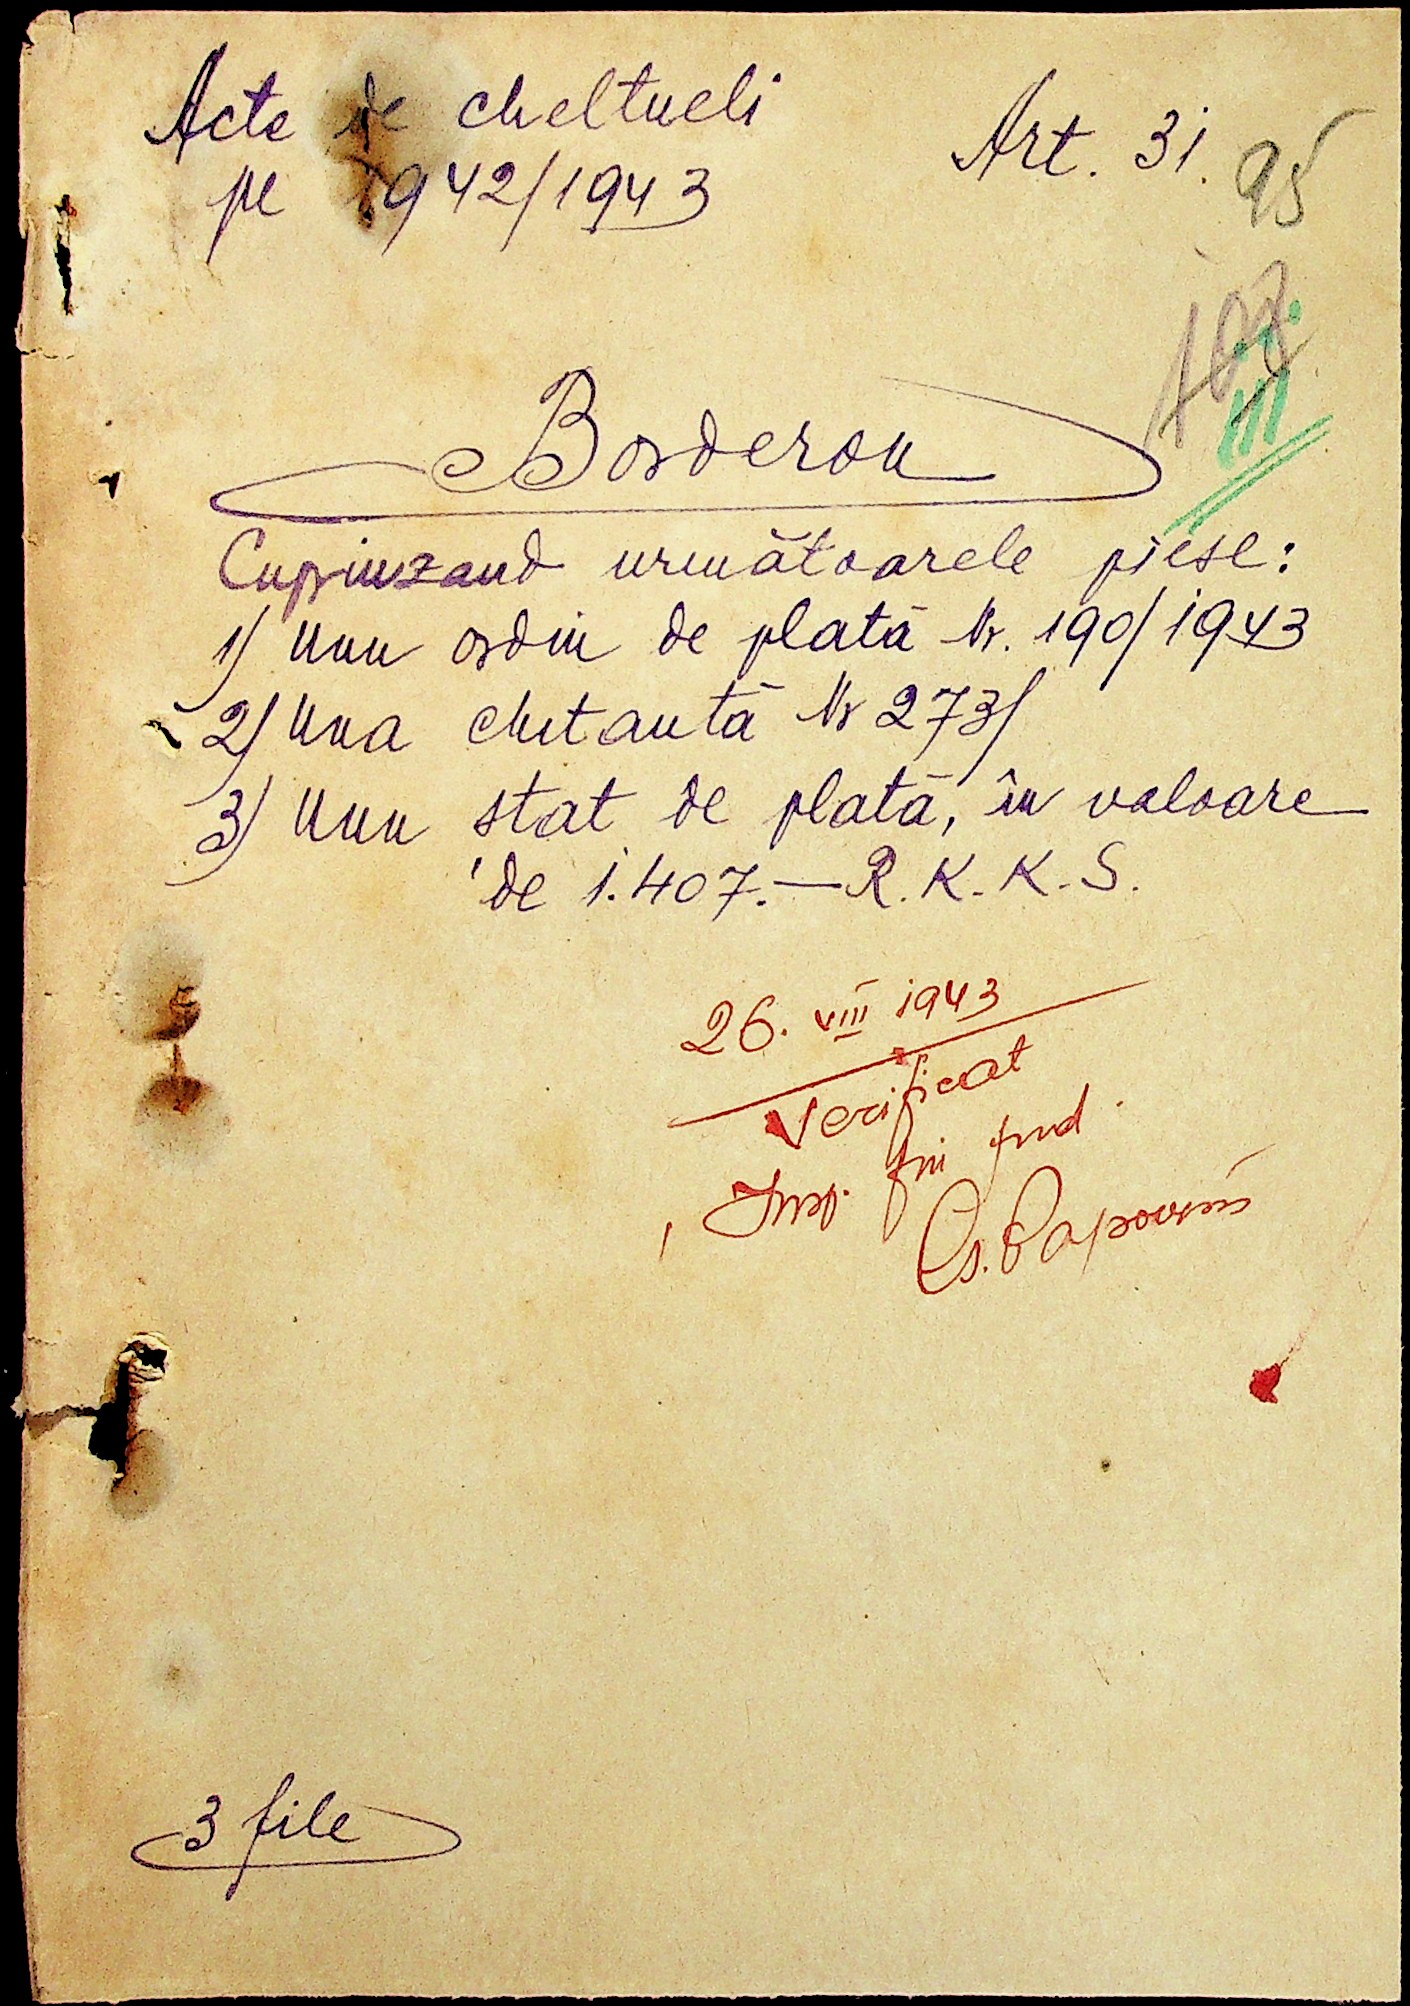 Acte de cheltueli
pe 1942/1943
Art. 31.
95
107
III
Borderou
Cuprinzand următoarele piese:
1) Unu ordin de plată Nr. 190/1943
2) Una chitantă Nr 273/
3) Unu stat de plată, în valoare
de 1.407.— R.K.K.S.
26. VIII 1943
Verificat
Insp. fin
3 file